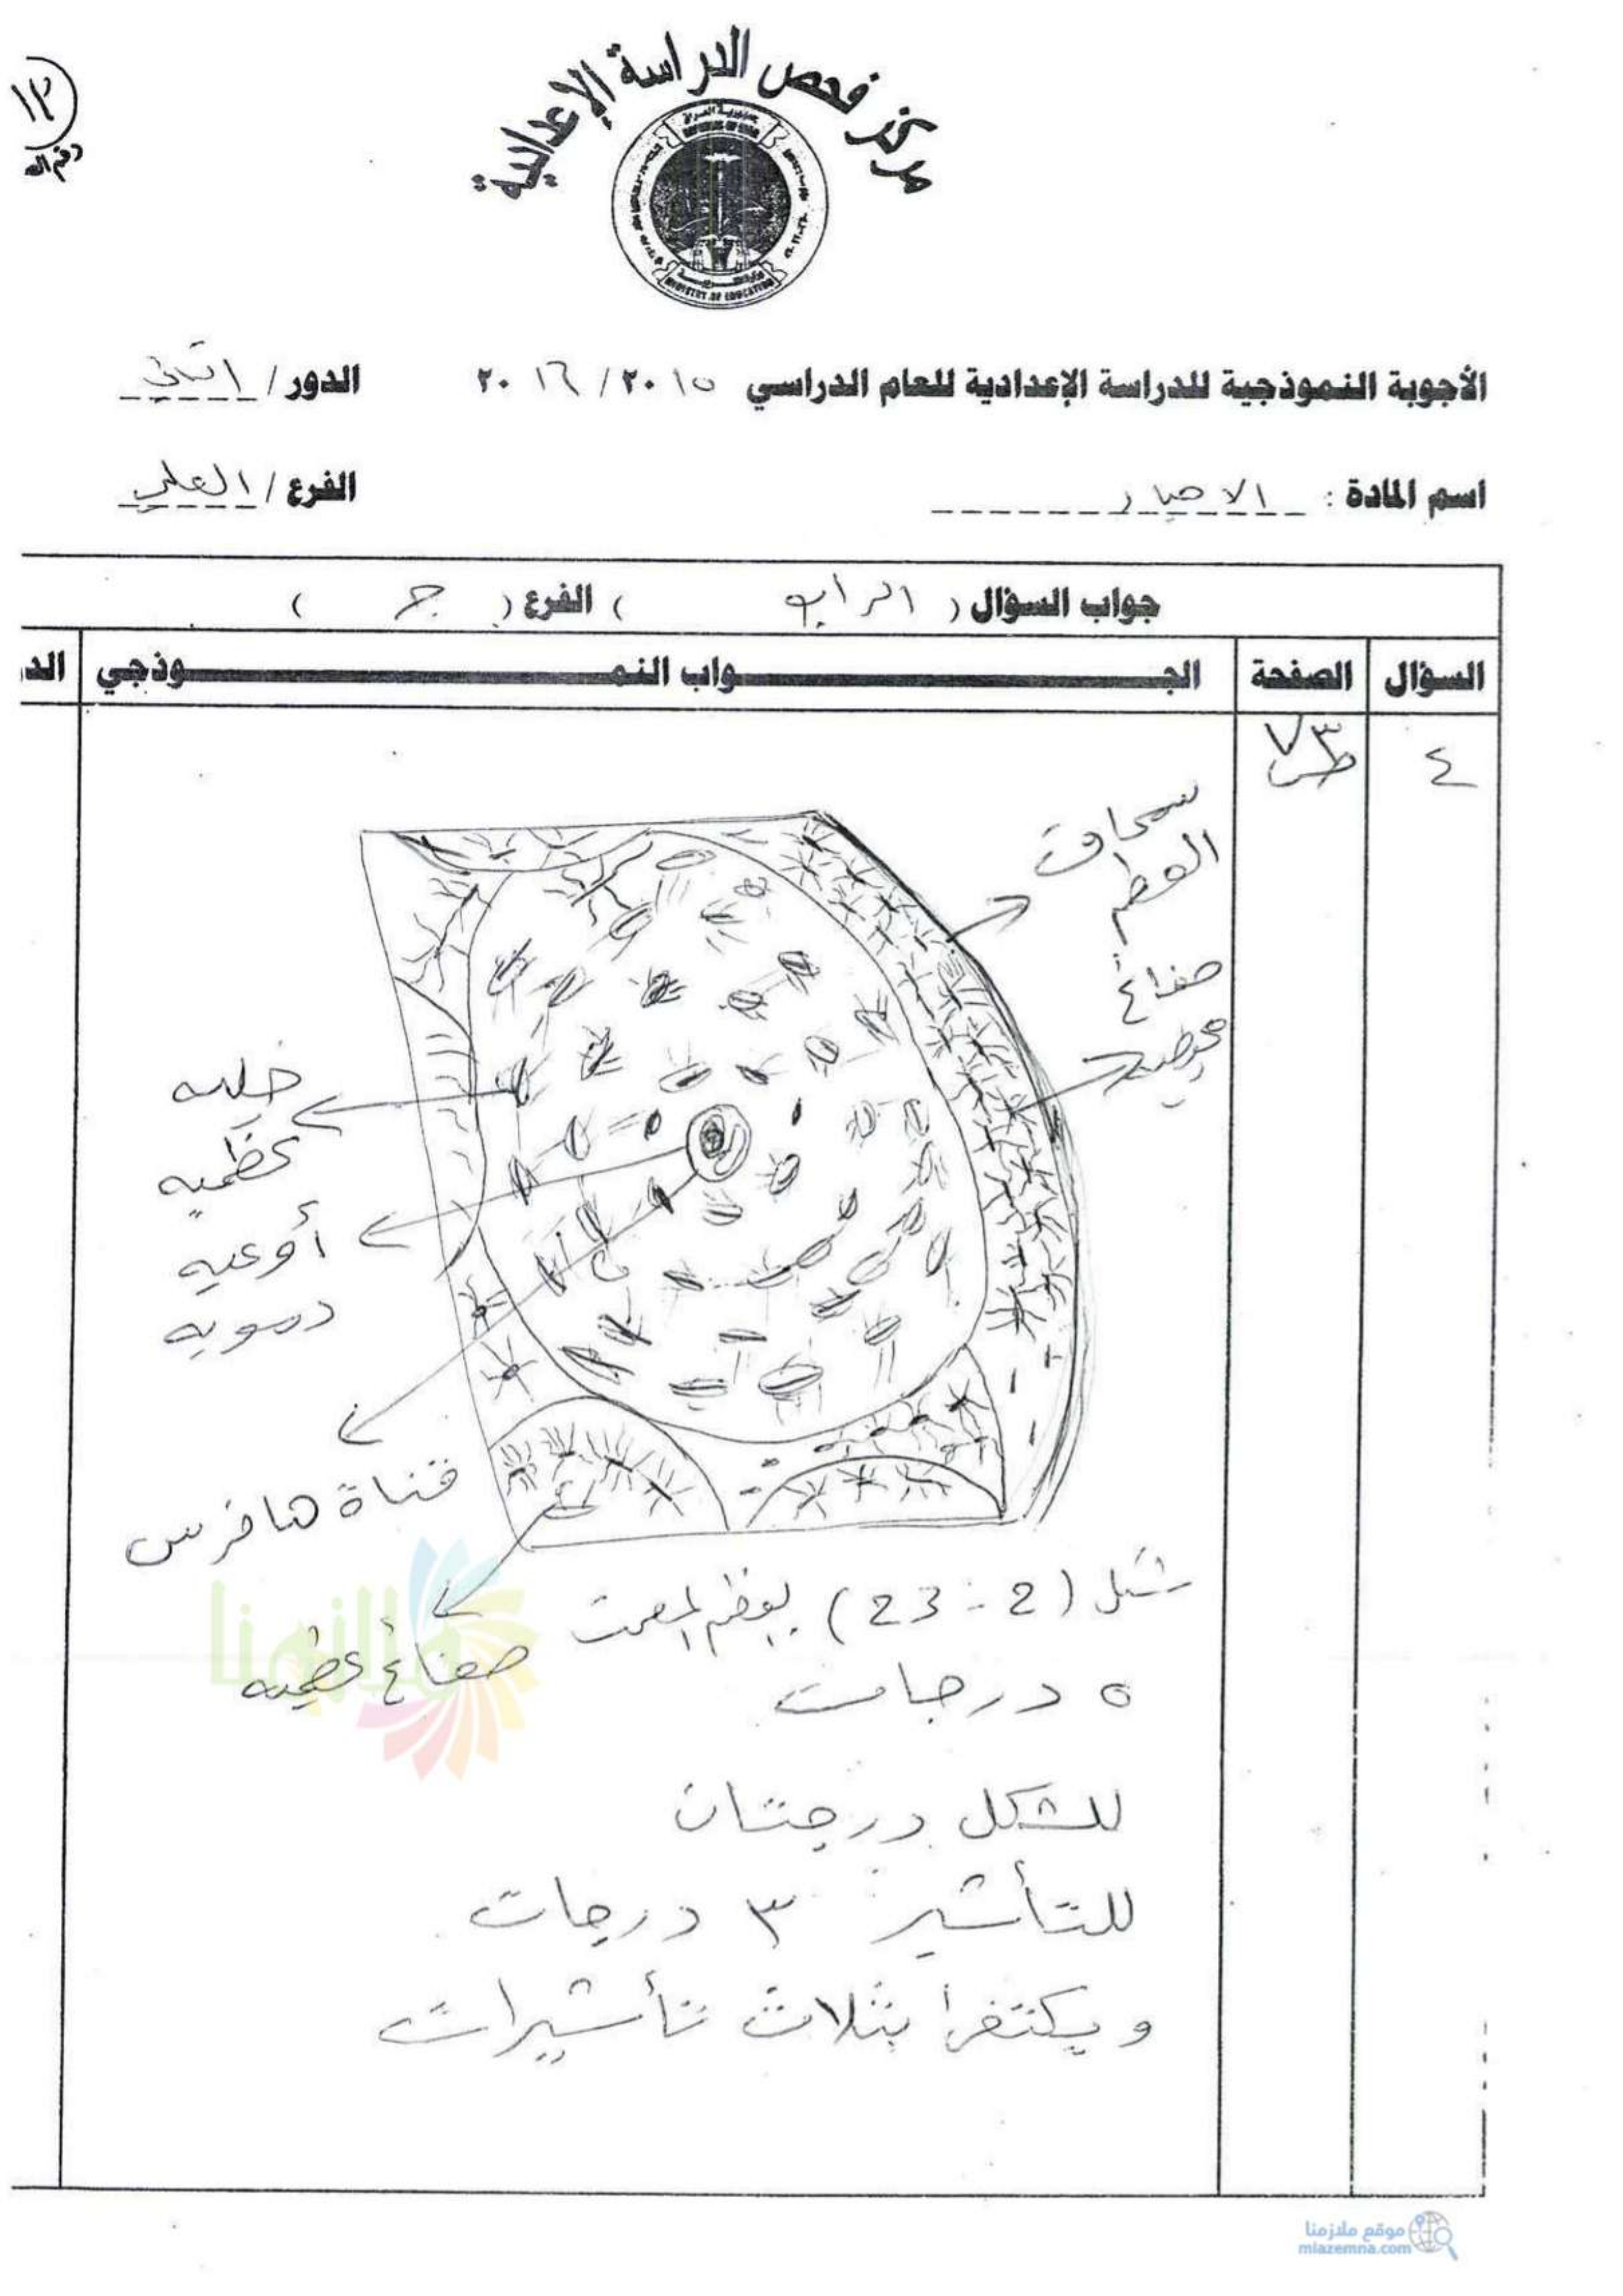 مركز فحص الدراسة الإعدادية
١٣
جمهورية العراق
MINISTRY OF EDUCATION
الأجوبة النموذجية للدراسة الإعدادية للعام الدراسي ٢٠١٥ / ٢٠١٦ الدور / الثاني
اسم المادة : الاحياء الفرع / العلمي
جواب السؤال ( الرابع ) الفرع ( ج )
السؤال الصفحة الجـواب النمـوذجي الد
٤
٧٣
سمحاق
العظم
صفائح
محيطية
خلية
عظمية
أوعية
دموية
قناة هافرس
صفائح عظمية
شكل (2-23) العظم المصمت
٥ درجات
للشكل درجتان
للتأشير ٣ درجات
ويكتفا بثلاث تأشيرات
ملازمنا
موقع ملازمنا
mlazemna.com